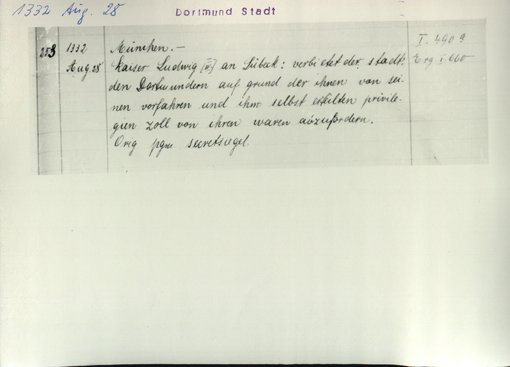 1332 Aug. 28
Dortmund Stadt
253
1332
Aug 28
München. —
Kaiser Ludwig [IV] an Lübeck: verbietet der stadt
den Dortmundern auf grund der ihnen von sei-
nen vorfahren und ihm selbst erteilten privile-
gien zoll von ihren waren abzufordern.
Orig pgm secretsiegel.
I. 490 9
Erg I 660